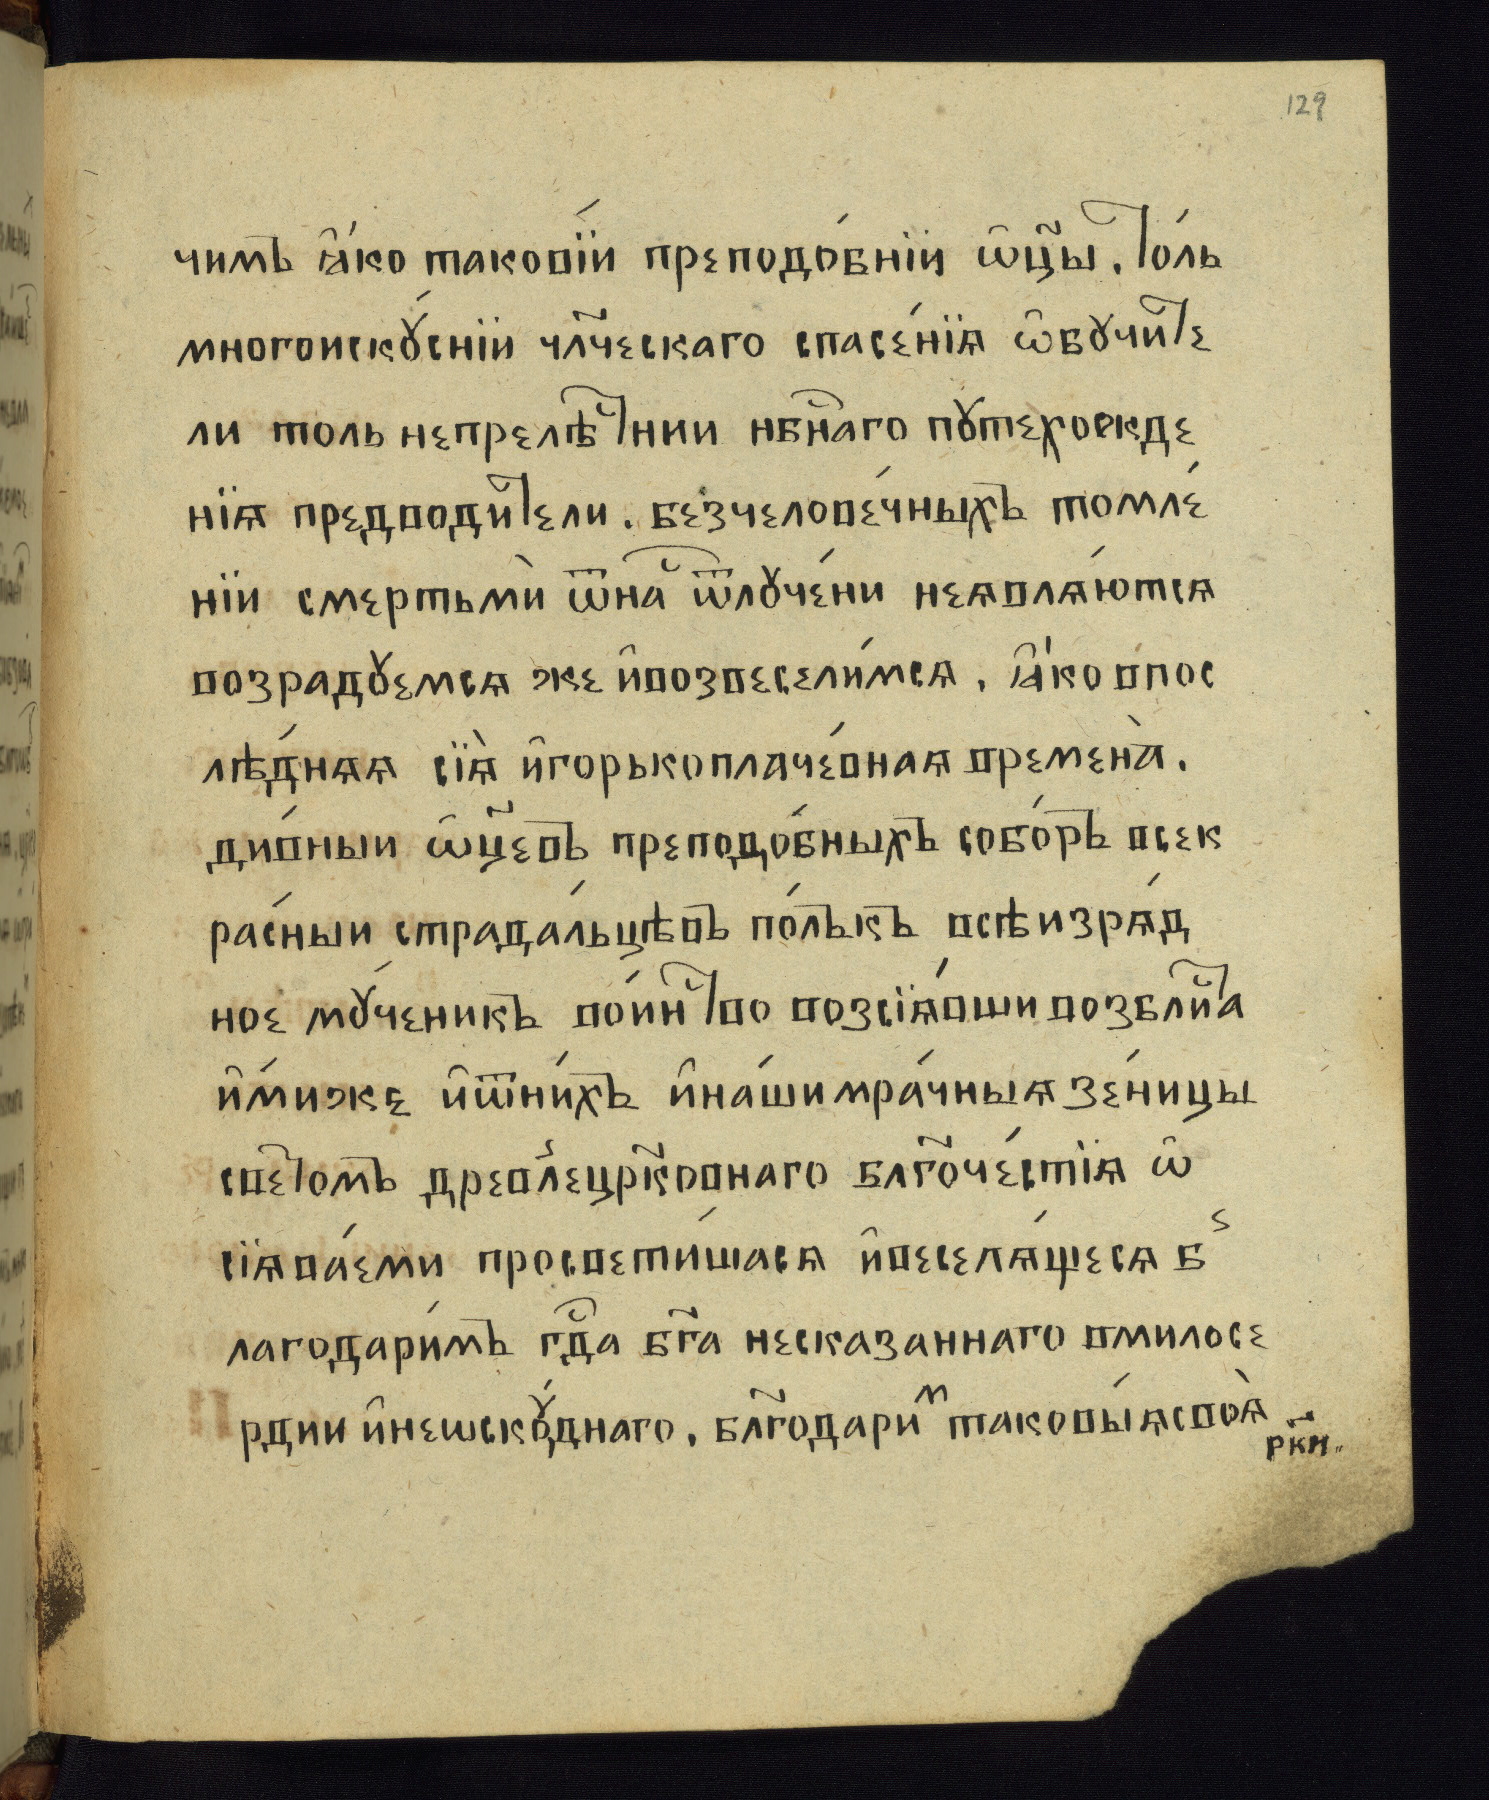 129
чимъ ꙗ҆́ко таковїи́ преподо́бнїи ѡ҆ц҃ы. то́ль
многоискꙋ́снїи чл҃ческаго спасе́нїѧ ѡ҆бꙋчи́те
ли толь непреле́стнии нб҃наго пꙋтехожде
нїѧ предводи́тели. безчелове́чныхъ томле́
нїи смертьми̑ ѿна́с ѿлꙋче́ни неѧвлѧ́ютсѧ
возрадꙋемсѧ же и҆возвесели́мсѧ. ꙗ҆́ко впос
лѣ́днѧѧ сїѧ̀ и҆горькоплаче́внаѧ времена̀.
ди́вныи ѡ҆ц҃евъ преподо́бныхъ собо́ръ всек
ра́сныи страда́льцѣвъ по́лъкъ всѣизрѧ́д
ное мꙋ́ченикъ во́инство возсїѧ́вши возблиста
и҆́миже и҆ѿни́хъ и҆на́ши мра́чныѧ зе́ницы
светомъ древлецр҃ковнаго бл҃гоче́стїѧ ѡ҆
сїѧва́еми просвети́шасѧ и҆веселѧ́щесѧ б
лагодари́мъ гд҃а бг҃а несказаннаго вмилосе
рдии и҆неѡскꙋ́днаго. бл҃годарим таковы́ѧ своѧ̀
ркн҃